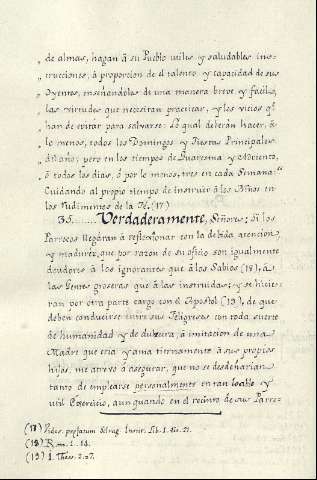 „ de almas, hagan á su Pueblo utiles y saludables ins-
„ trucciones, á proporcion de el talento y capacidad de sus
„ Oyentes, enseñandoles de una manera breve y facil,
„ las virtudes que necesitan practicar, y los vicios qe
„ han de evitar para salvarse: Lo qual deberán hacer, á
„ lo menos, todos los Domingos y Fiestas Principales
„ del año; pero en los tiempos de Quaresma y Adviento,
„ ó todos los dias, ó por lo menos, tres en cada Semana:
Cuidando al propio tiempo de instruir á los Niños en
los Rudimentos de la Fé. (17)
35...... Verdaderamente, Señores: Si los
Parrocos llegáran á reflexionar con la debida atencion
y madurez, que por razon de su oficio son igualmente
deudores á los ignorantes que á los Sabios (18), á
las Gentes groseras que á las instruidas; y se hicie-
ran por otra parte cargo con el Apostol (19), de que
deben conducirse entre sus Feligreses con toda suerte
de humanidad y de dulzura, á imitacion de una
Madre que cria y ama tiernamente á sus propios
hijos, me atrevo á asegurar, que no se desdeñarian
tanto de emplearse personalmente en tan loable y
util Exercicio, aun quando en el recinto de sus Parro-
(18) Lib. 1.
(18) Rom. 1. 14.
(19) 1. Thess. 2. v7.